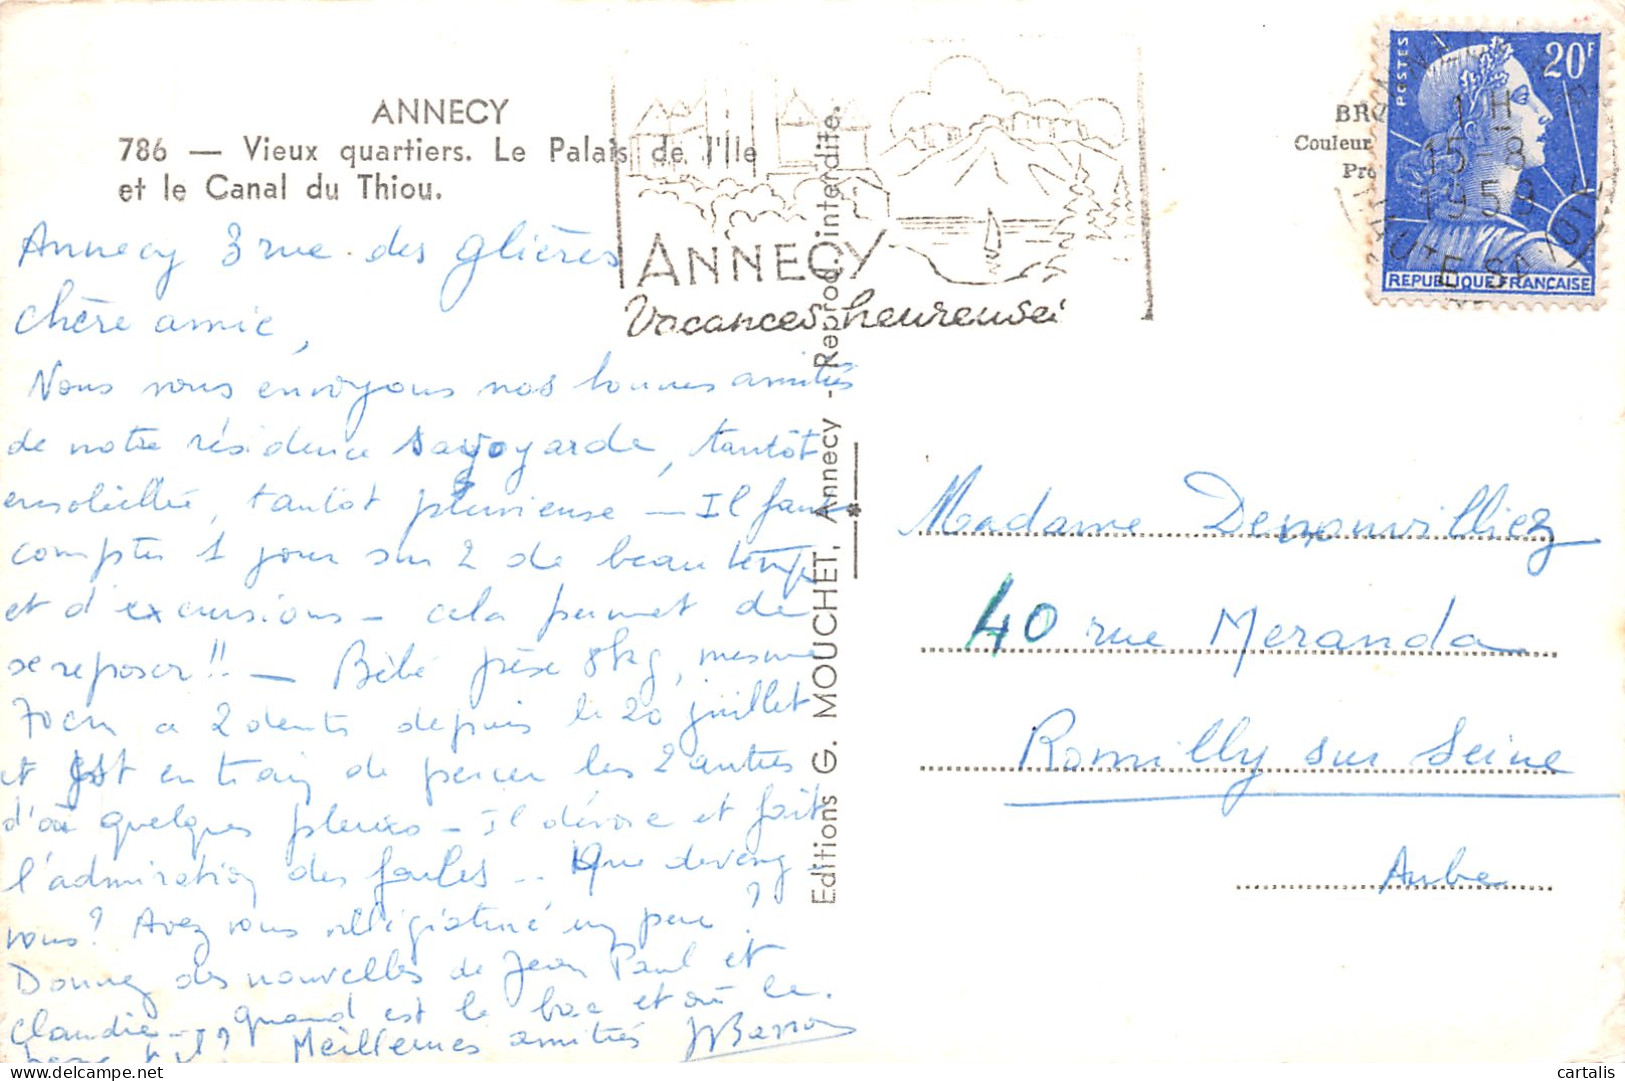 ANNECY
786 — Vieux quartiers. Le Palais de l'Ile
et le Canal du Thiou.
Annecy 3 rue des Glières
Chère amie,
Nous vous envoyons nos bonnes amitiés
de notre résidence savoyarde, tantôt
ensoleillée, tantôt pluvieuse — Il faut
compter 1 jour sur 2 de beau temps
et d'excursions — cela permet de
se reposer !! — Bébé pèse 8kg, mesure
70cm a 2 dents depuis le 20 juillet
et est en train de percer les 2 autres
d'où quelques pleurs — Il dévore et fait
l'admiration des foules .. Que devenez
vous ? Avez vous villégiaturé un peu ?
Donnez des nouvelles de Jean Paul et
Claudie — quand est le bac et où le
Meilleures amitiés
ANNECY
Vacances heureuses
Editions G. MOUCHET, Annecy - Reprod. interdite.
BRO
Couleur
Pro
POSTES
20F
REPUBLIQUE FRANÇAISE
1 H
15-8
1959
HAUTE SAVOIE
Madame Denonvilliez
40 rue Meranda
Romilly sur Seine
Aube
cartalis